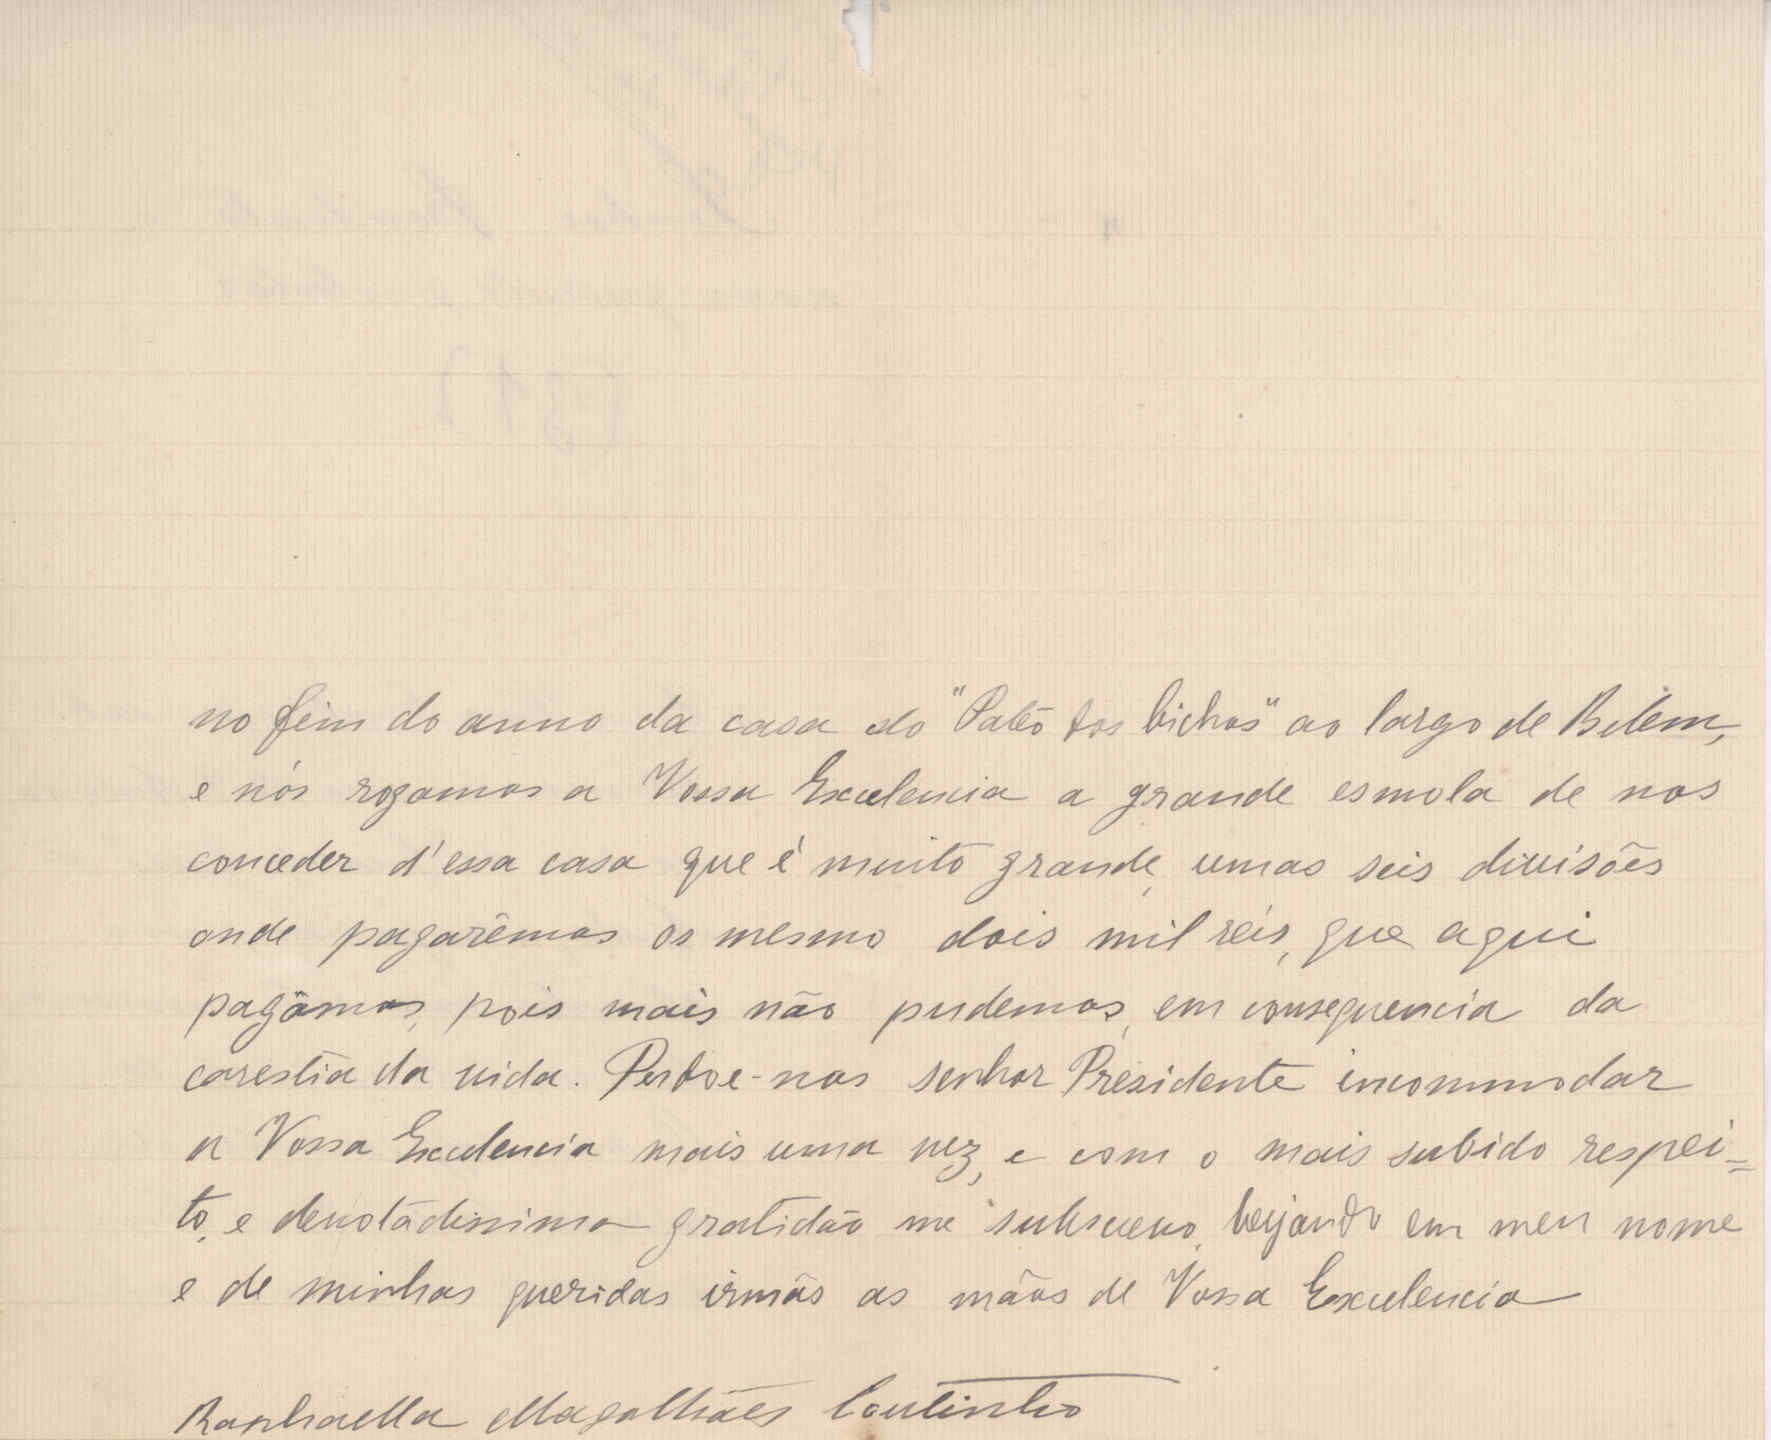 no fim do anno da casa do "Pateo dos bichos" ao largo de Belem,
e nós rogamos a Vossa Excelencia a grande esmola de nos
conceder d'essa casa que é muito grande, umas seis divisões
onde pagarêmos os mesmo dois mil réis, que aqui
pagâmos, pois mais não pudemos, em consequencia da
carestia da vida. Perdoe-nos senhor Presidente incommodar
a Vossa Excelencia mais uma vez, e com o mais subido respei=
to, e devotádissima gratidão me subscrevo, beijando em meu nome
e de minhas queridas irmãs as mãos de Vossa Excelencia
Raphaella Magalhães Coutinho